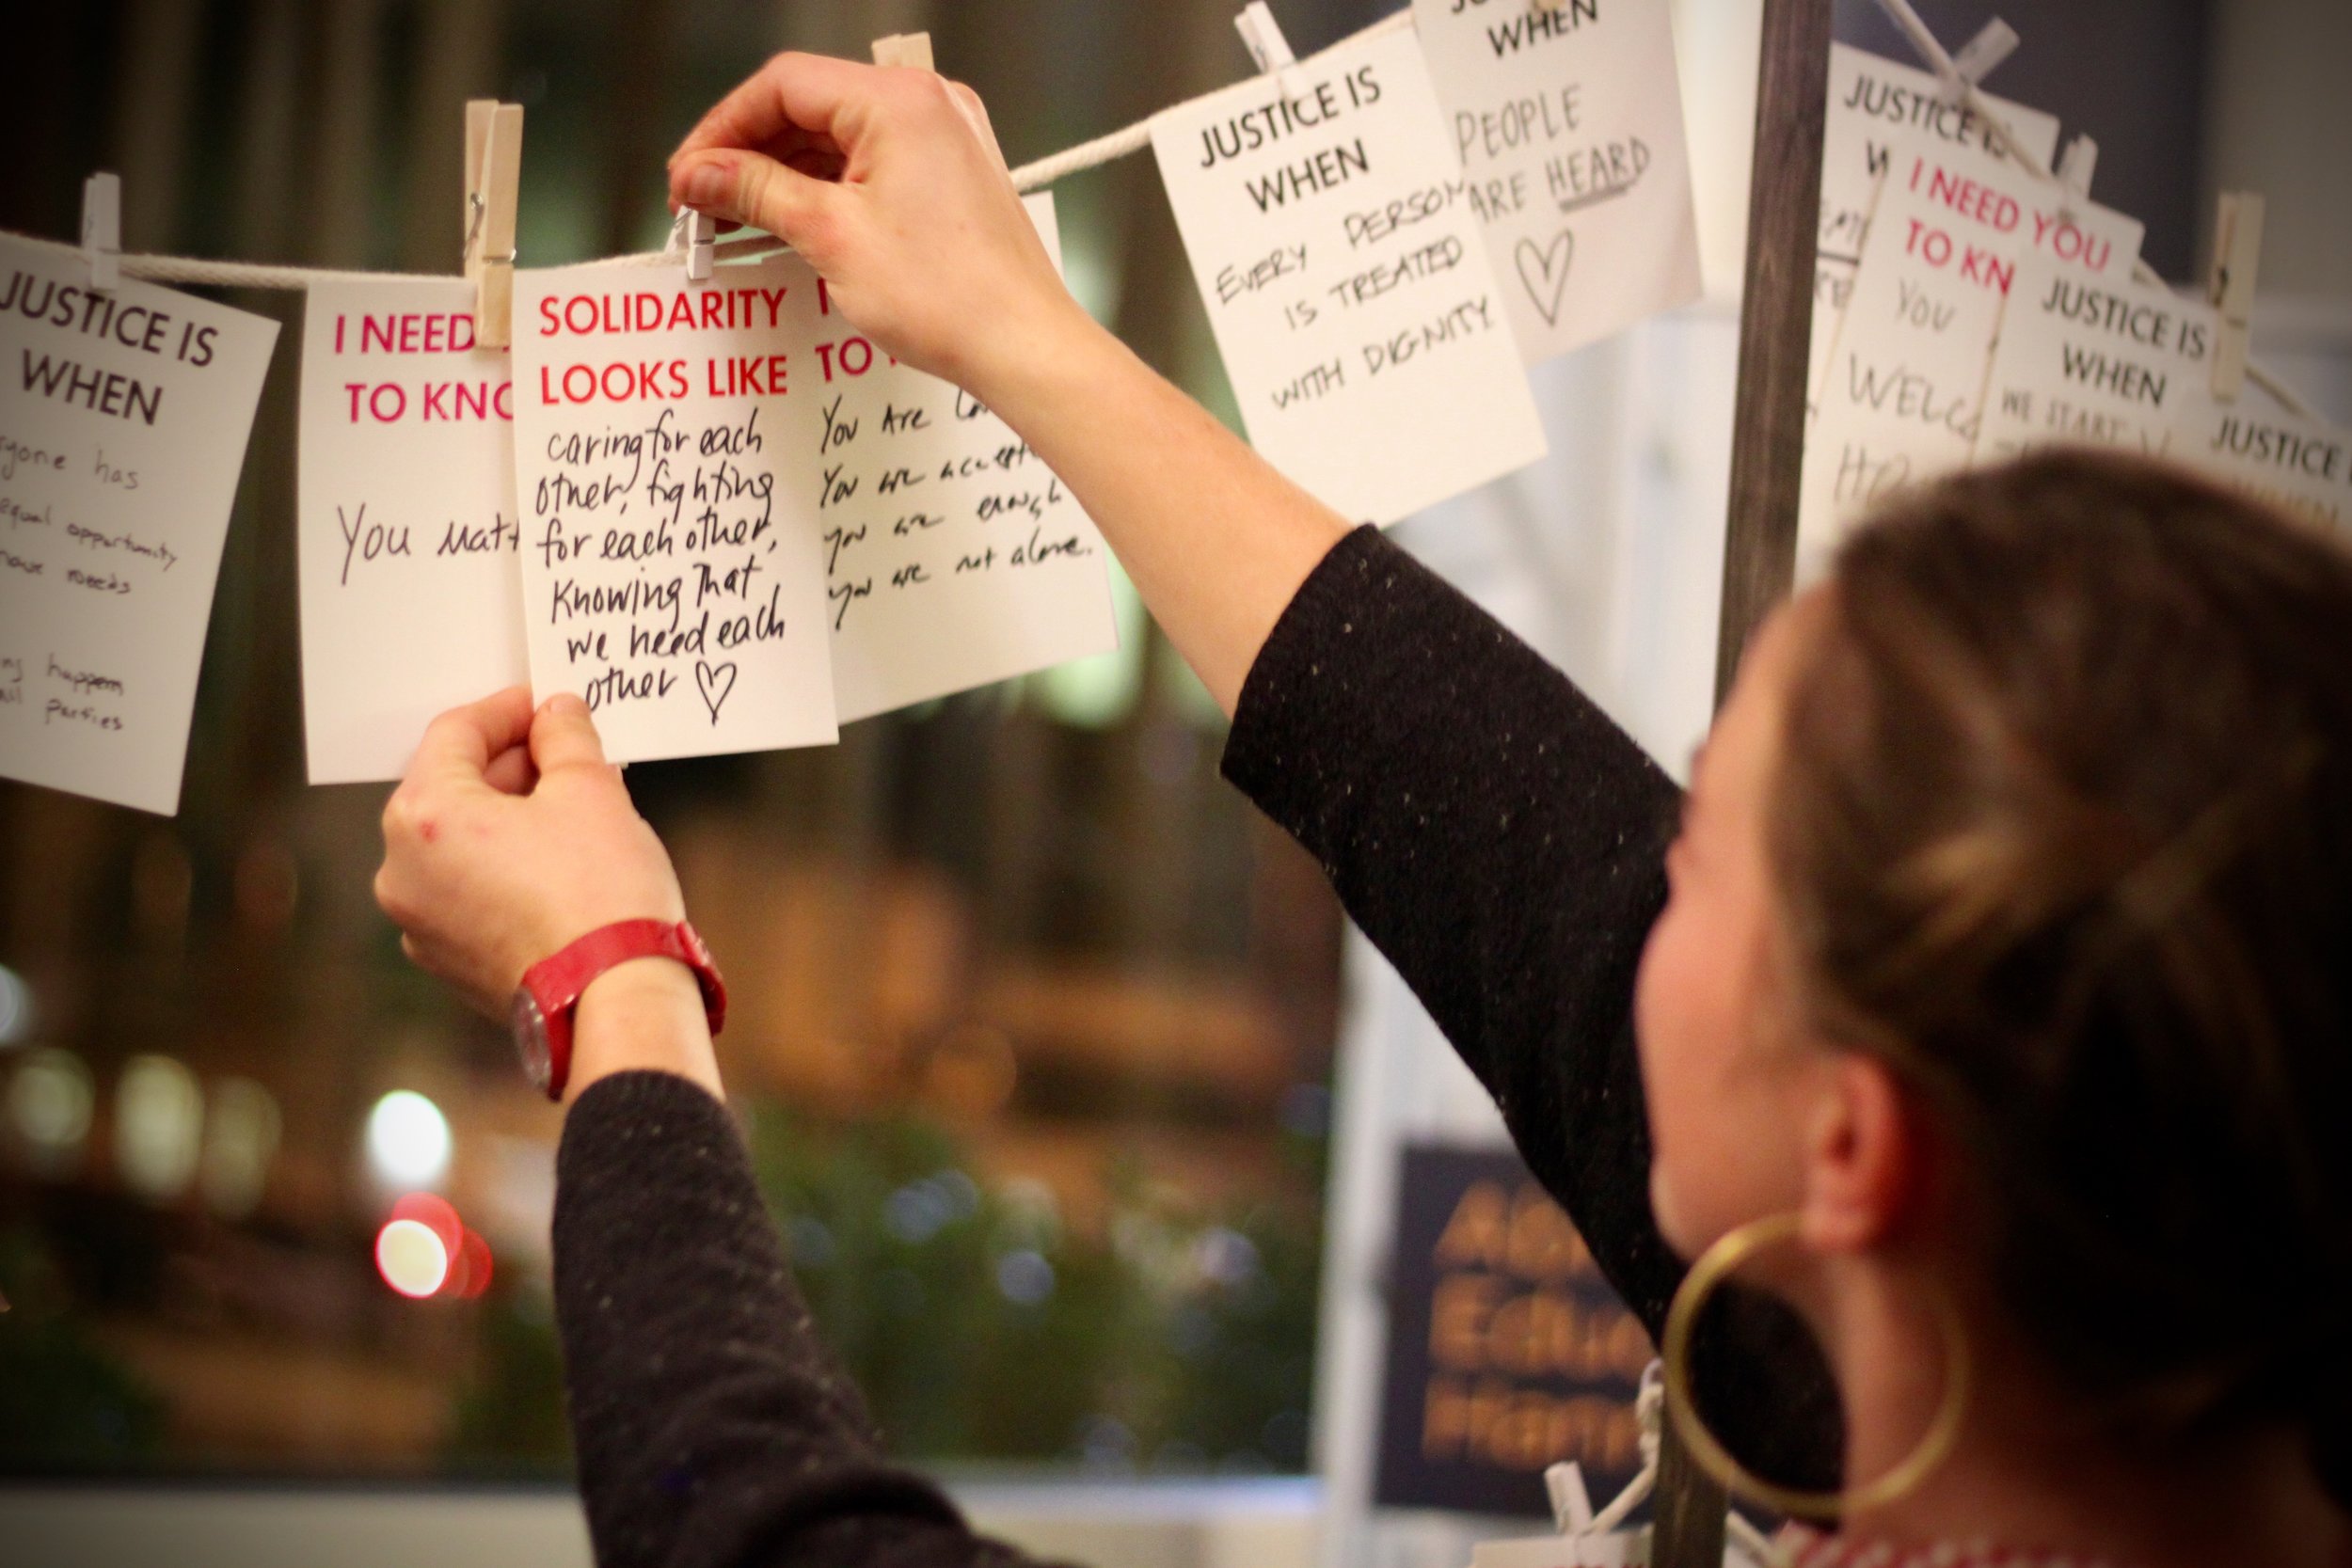 JUSTICE IS
WHEN
has
equal opportunity
needs
happen
all parties
I NEED
TO
You
SOLIDARITY
LOOKS LIKE
caring for each
other, fighting
for each other,
Knowing that
we need each
other ♡
TO
You Are
You are
you are enough
you are not alone.
JUSTICE IS
WHEN
EVERY PERSON
IS TREATED
WITH DIGNITY.
WHEN
PEOPLE
ARE HEARD
♡
JUSTICE IS
I NEED YOU
TO
YOU
JUSTICE IS
WHEN
WE START
JUSTICE
WHEN